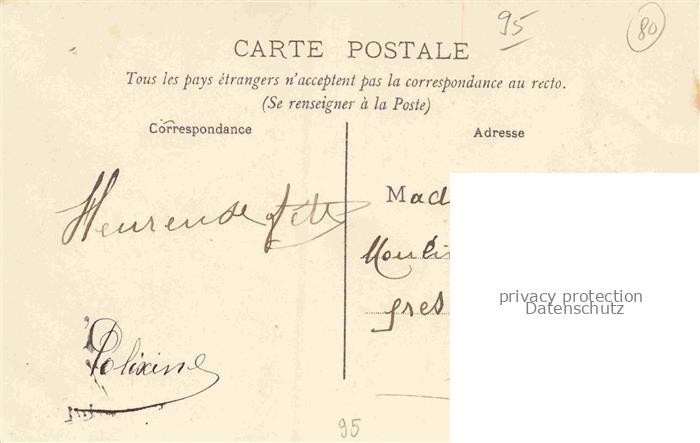 95
80
CARTE POSTALE
Tous les pays étrangers n'acceptent pas la correspondance au recto.
(Se renseigner à la Poste)
Correspondance
Adresse
Heureuse fête
Mad
Moulin
près
Polixine
privacy protection
Datenschutz
95